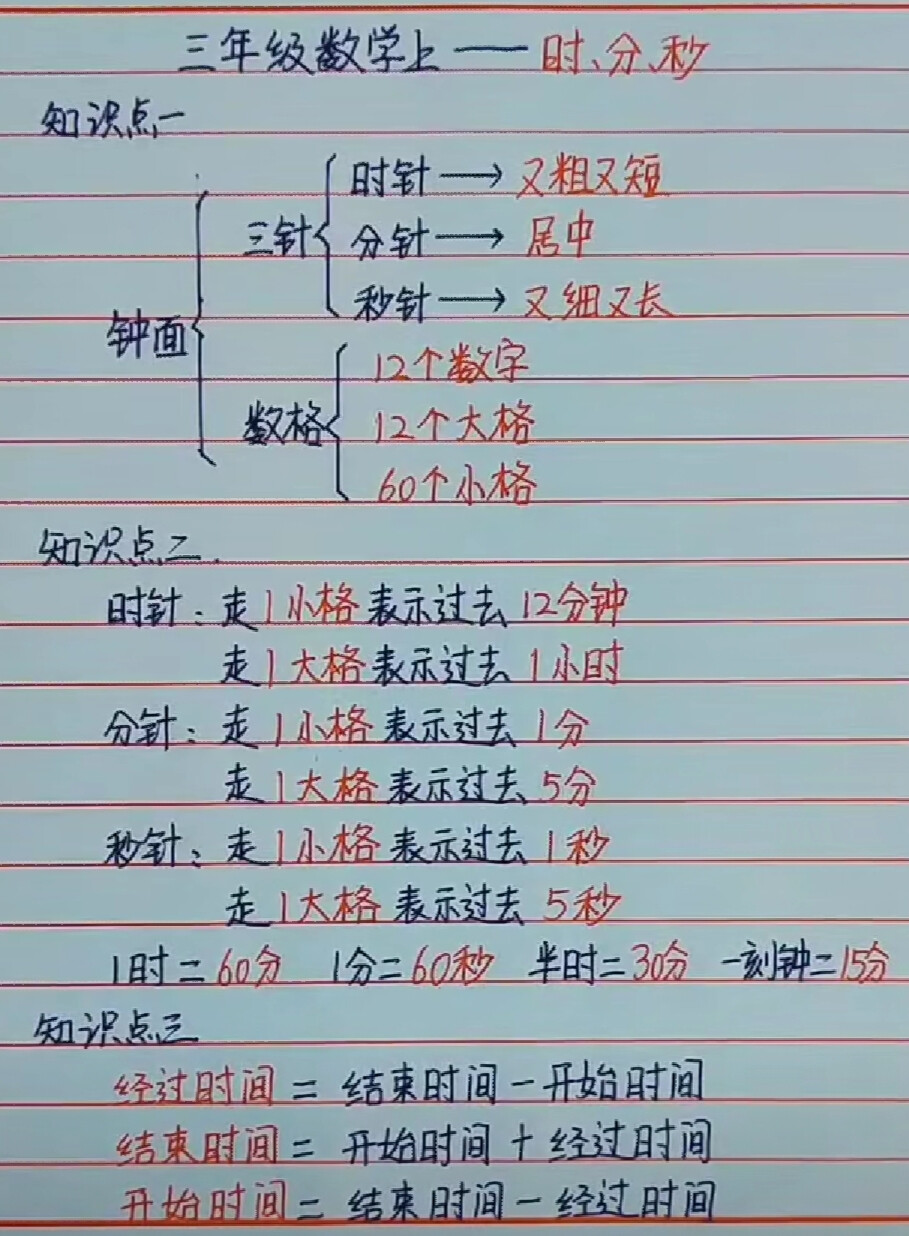 三年级数学上——时、分、秒
知识点一
时针→又粗又短
三针
分针→居中
秒针→又细又长
钟面
12个数字
数格
12个大格
60个小格
知识点二
时针：走1小格表示过去12分钟
走1大格表示过去1小时
分针：走1小格表示过去1分
走1大格表示过去5分
秒针：走1小格表示过去1秒
走1大格表示过去5秒
1时=60分 1分=60秒 半时=30分 一刻钟=15分
知识点三
经过时间=结束时间-开始时间
结束时间=开始时间+经过时间
开始时间=结束时间-经过时间